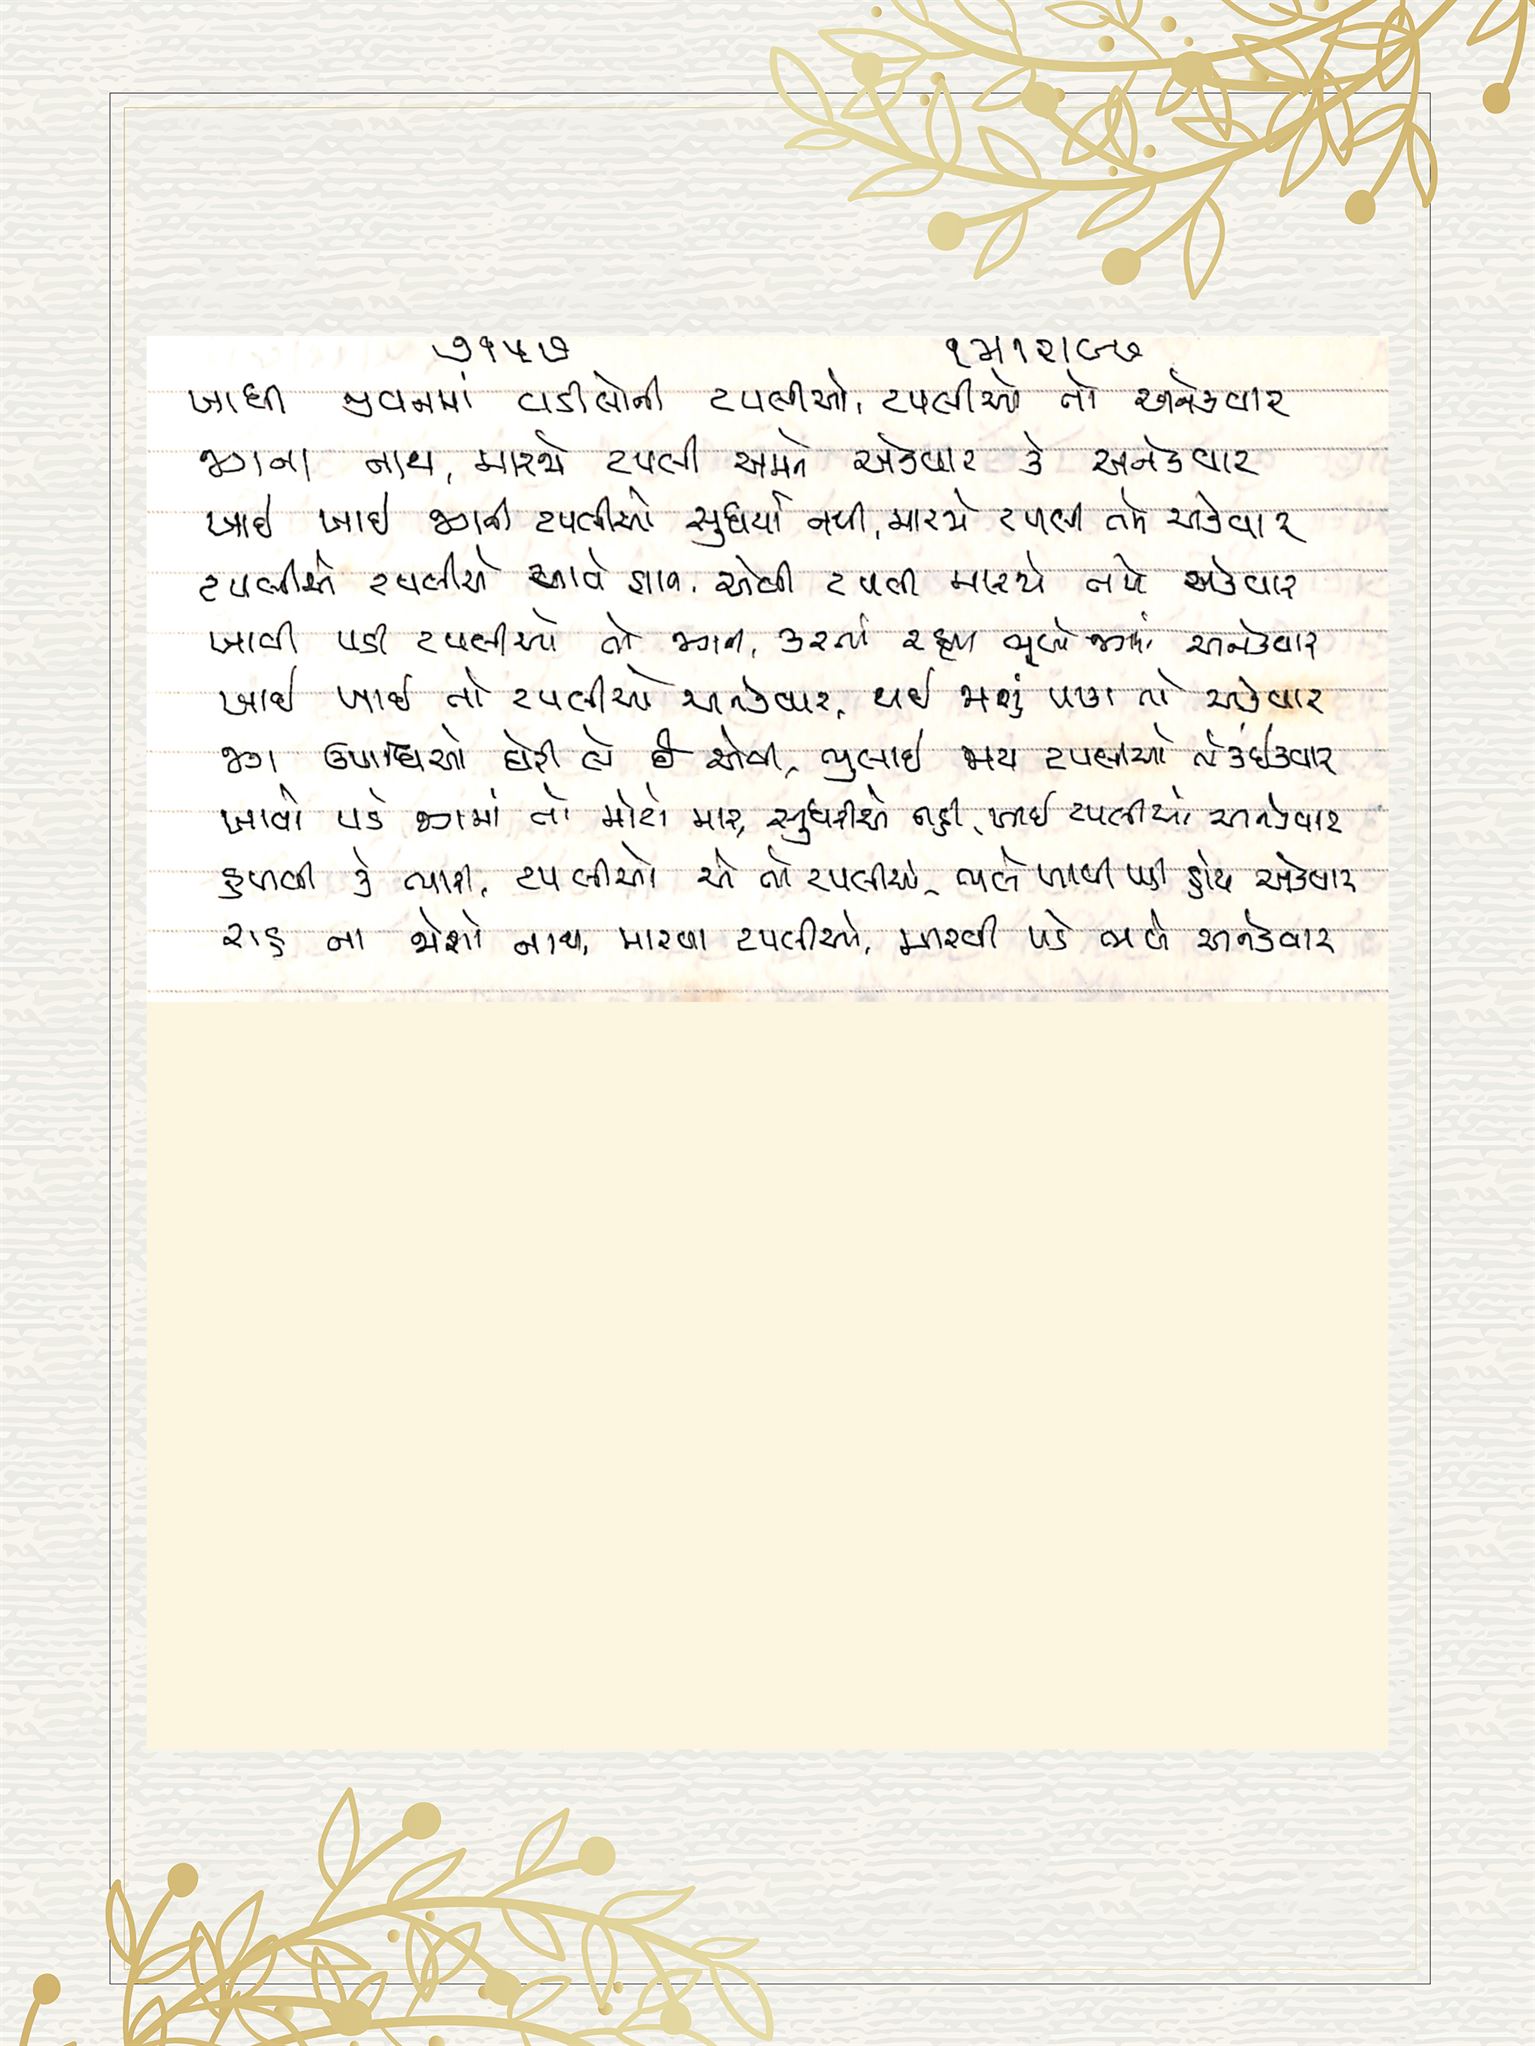 ૭૧૫૭ ૧૫૧૨૧૯૭
ખાધી જીવનમાં વડીલોની ટપલીઓ, ટપલીઓ તો અનેકવાર
જગના નાથ, મારજે ટપલી અમને એકવાર કે અનેકવાર
ખાઈ ખાઈ જગની ટપલીઓ સુધર્યા નથી, મારજે ટપલી તમે એકવાર
ટપલીએ ટપલીએ આવે જ્ઞાન, એવી ટપલી મારજે નાથ એકવાર
ખાવી પડી ટપલીઓ તો જગને, કરતા રહ્યા ભૂલો જગમાં અનેકવાર
ખાઈ ખાઈ તો ટપલીઓ અનેકવાર, થઈ જાશું પાકા તો એકવાર
જગ ઉપાધિઓ હોરી લે છે એવી, ભુલાઈ જાય ટપલીઓ તો કંઈકવાર
ખાવો પડે જગમાં તો મોટો માર, સુધરીએ નહીં, ખાઈ ટપલીઓ અનેકવાર
હળવી કે ભારી, ટપલીઓ એ તો ટપલીઓ, ભલે ખાવી પડી હોય એકવાર
રાહ ના જોશો નાથ, મારવા ટપલીઓ, મારવી પડે ભલે અનેકવાર